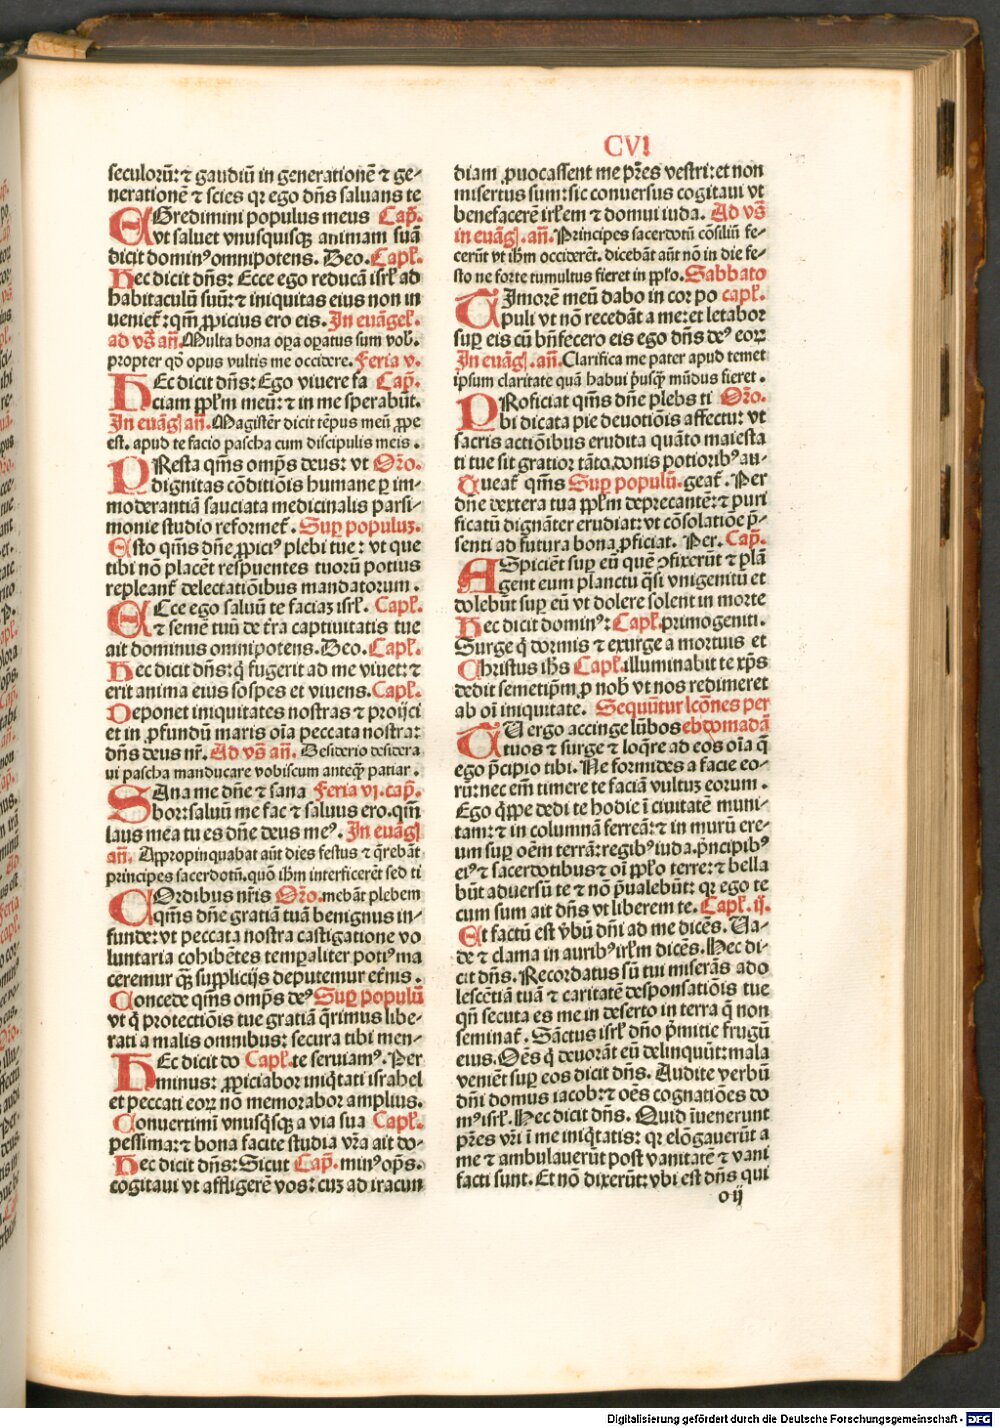 CVI
seculorū: ⁊ gaudiū in generationē ⁊ ge-
nerationē ⁊ scies qꝛ ego dn̄s saluans te
EGredimini populus meus Cap̄.
vt saluet vnusquisqꝫ animam suā
dicit dominꝰ omnipotens. Deo. Capl̄.
Hec dicit dn̄s: Ecce ego reducā isrl̄ ad
habitaculū suū: ⁊ iniquitas eius non in
veniet̄: qm̄ ꝓpicius ero eis. In euāgel̄.
ad vs̄ an̄. Multa bona oꝑa oꝑatus sum vob̄.
propter qd̄ opus vultis me occidere. Feria v.
HEc dicit dn̄s: Ego viuere fa Cap̄.
ciam ppl̄m meū: ⁊ in me sperabūt.
In euāgl̄ an̄. Magister̄ dicit tēpus meū ꝓpe
est. apud te facio pascha cum discipulis meis.
PResta qm̄s omp̄s deus: vt Orō.
dignitas cōditiōis humane ꝑ im-
moderantiā sauciata medicinalis parsi-
monie studio reformet̄. Suꝑ populuꝫ.
Esto qm̄s dn̄e ꝓpiciꝰ plebi tue: vt que
tibi nō placēt respuentes tuorū potius
repleant̄ delectatiōibus mandatorum.
ECce ego saluū te faciaꝫ isrl̄. Capl̄.
⁊ semē tuū de t̄ra captiuitatis tue
ait dominus omnipotens. Deo. Capl̄.
Hec dicit dn̄s: q̄ fugerit ad me viuet: ⁊
erit anima eius sospes et viuens. Capl̄.
Deponet iniquitates nostras ⁊ proijci
et in ꝓfundū maris oīa peccata nostra:
dn̄s deus nr̄. Ad vs̄ an̄. Desiderio desidera
ui pascha manducare vobiscum anteqꝫ patiar.
SAna me dn̄e ⁊ sana Feria vi. cap̄.
bor: saluū me fac ⁊ saluus ero. qm̄
laus mea tu es dn̄e deus meꝰ. In euāgl̄
an̄. Appropinquabat aūt dies festus ⁊ q̄rebāt
principes sacerdotū. quō ihm̄ interficerēt sed ti
COrdibus nr̄is Orō. mebāt plebem
qm̄s dn̄e gratiā tuā benignus in-
funde: vt peccata nostra castigatione vo
luntaria cohibētes temꝑaliter potiꝰ ma
ceremur qꝫ supplicijs deputemur et̄nis.
Concede qm̄s omp̄s deꝰ Suꝑ populū
vt q̄ protectiōis tue gratiā q̄rimus libe-
rati a malis omnibus: secura tibi men-
HEc dicit do Capl̄. te seruiamꝰ. Per
minus: ꝓpiciabor iniq̄tati israhel
et peccati eoꝝ nō memorabor amplius.
Conuertimī vnusq̄sqꝫ a via sua Capl̄.
pessima: ⁊ bona facite studia vr̄a ait do-
Hec dicit dn̄s: Sicut Cap̄. minꝰ op̄s.
cogitaui vt affligerē vos: cuꝫ ad iracun
diam ꝓuocassent me pr̄es vestri: et non
misertus sum: sic conuersus cogitaui vt
benefacerē irl̄em ⁊ domui iuda. Ad vs̄
in euāgl̄. an̄. Principes sacerdotū cōsiliū fe-
cerūt vt ihm̄ occiderēt. dicebāt aūt nō in die fe-
sto ne forte tumultus fieret in ppl̄o. Sabbato
TImorē meū dabo in cor po capl̄.
puli vt nō recedāt a me: et letabor
suꝑ eis cū bn̄fecero eis ego dn̄s deꝰ eoꝝ
In euāgl̄. an̄. Clarifica me pater apud temet
ipsum claritate quā habui p̄usqꝫ mūdus fieret.
PRoficiat qm̄s dn̄e plebs ti Orō.
bi dicata pie deuotiōis affectu: vt
sacris actiōibus erudita quāto maiesta
ti tue sit gratior tāto. donis potioribꝰ au-
Queat̄ qm̄s Suꝑ populū. geat̄. Per
dn̄e dextera tua ppl̄m deprecantē: ⁊ puri
ficatū dignāter erudiat: vt cōsolatiōe p̄-
senti ad futura bona ꝓficiat. Per. Cap̄.
ASpiciēt suꝑ eū quē ꝯfixerūt ⁊ plā
gent eum planctu q̄si vnigenitū et
dolebūt suꝑ eū vt dolere solent in morte
Hec dicit dominꝰ: Capl̄. primogeniti.
Surge q̄ dormis ⁊ exurge a mortuis et
Christus ihs̄ Capl̄. illuminabit te xp̄s
dedit semetip̄m ꝓ nob̄ vt nos redimeret
ab oī iniquitate. Sequūtur lcōnes per
TU ergo accinge lūbos ebdomadā
tuos ⁊ surge ⁊ loq̄re ad eos oīa q̄
ego p̄cipio tibi. Ne formides a facie eo-
rū: nec em̄ timere te faciā vultuꝫ eorum.
Ego q̄ppe dedi te hodie ī ciuitatē muni-
tam: ⁊ in columnā ferreā: ⁊ in murū ere-
um suꝑ oēm terrā: regibꝰ iuda. p̄ncipibꝰ
eiꝰ ⁊ sacerdotibus ⁊ oī ppl̄o terre: ⁊ bella
būt aduersū te ⁊ nō p̄ualebūt: qꝛ ego te
cum sum ait dn̄s vt liberem te. Capl̄. ij.
Et factū est v̄bū dn̄i ad me dicēs. Ua-
de ⁊ clama in auribꝰ irl̄m dicēs. Hec di-
cit dn̄s. Recordatus sū tui miserās ado
lescētiā tuā ⁊ caritatē desponsatiōis tue
qn̄ secuta es me in deserto in terra q̄ non
seminat̄. Sāctus isrl̄ dn̄o p̄mitie frugū
eius. Oēs q̄ deuorāt eū delinquūt: mala
veniēt suꝑ eos dicit dn̄s. Audite verbū
dn̄i domus iacob: ⁊ oēs cognatiōes do
mꝰ isrl̄. Hec dicit dn̄s. Quid īuenerunt
pr̄es vr̄i ī me iniq̄tatis: qꝛ elōgauerūt a
me ⁊ ambulauerūt post vanitatē ⁊ vani
facti sunt. Et nō dixerūt: vbi est dn̄s qui
o ij
Digitalisierung gefördert durch die Deutsche Forschungsgemeinschaft - DFG